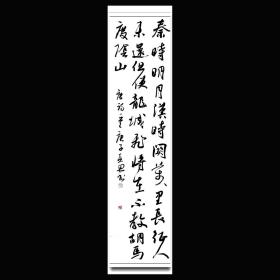 秦時明月漢時関萬里長征人
未還但使龍城飛將在不教胡馬
度陰山
唐詩一首庚子